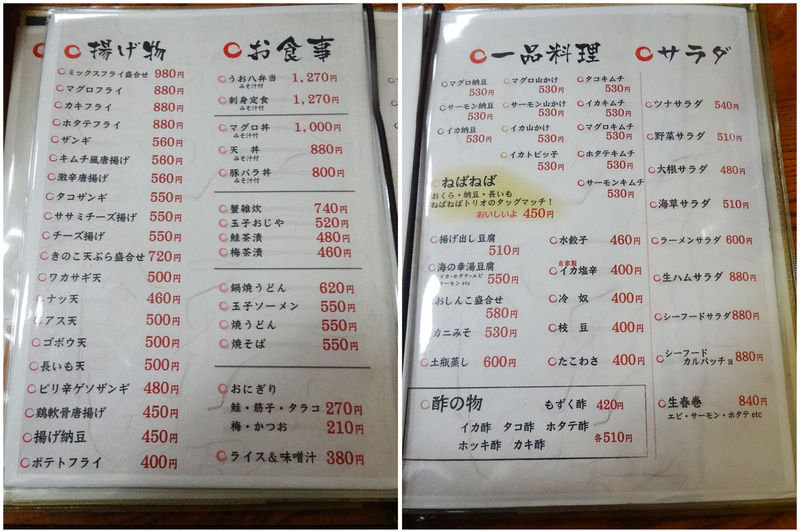 揚げ物
ミックスフライ盛合せ 980円
マグロフライ 880円
カキフライ 880円
ホタテフライ 880円
ザンギ 560円
キムチ風唐揚げ 560円
激辛唐揚げ 560円
タコザンギ 550円
ササミチーズ揚げ 550円
チーズ揚げ 550円
きのこ天ぷら盛合せ 720円
ワカサギ天 500円
ナッ天 460円
アス天 500円
ゴボウ天 500円
長いも天 500円
ピリ辛ゲソザンギ 480円
鶏軟骨唐揚げ 450円
揚げ納豆 450円
ポテトフライ 400円
お食事
うお八弁当 1,270円
みそ汁付
刺身定食 1,270円
みそ汁付
マグロ丼 1,000円
みそ汁付
天丼 880円
みそ汁付
豚バラ丼 800円
みそ汁付
蟹雑炊 740円
玉子おじや 520円
鮭茶漬 480円
梅茶漬 460円
鍋焼うどん 620円
玉子ソーメン 550円
焼うどん 550円
焼そば 550円
おにぎり
鮭・筋子・タラコ 270円
梅・かつお 210円
ライス&味噌汁 380円
一品料理
マグロ納豆 530円
サーモン納豆 530円
イカ納豆 530円
マグロ山かけ 530円
サーモン山かけ 530円
イカ山かけ 530円
イカトビッ子 530円
タコキムチ 530円
イカキムチ 530円
マグロキムチ 530円
ホタテキムチ 530円
サーモンキムチ 530円
ねばねば
おくら・納豆・長いも
ねばねばトリオのタッグマッチ!
おいしいよ 450円
揚げ出し豆腐 510円
海の幸湯豆腐 550円
イカ・ホタテ・エビ
サーモン etc
おしんこ盛合せ 580円
カニみそ 530円
土瓶蒸し 600円
水餃子 460円
自家製
イカ塩辛 400円
冷奴 400円
枝豆 400円
たこわさ 400円
酢の物
もずく酢 420円
イカ酢 タコ酢 ホタテ酢
ホッキ酢 カキ酢 各510円
サラダ
ツナサラダ 540円
野菜サラダ 510円
大根サラダ 480円
海草サラダ 510円
ラーメンサラダ 600円
生ハムサラダ 880円
シーフードサラダ 880円
シーフード
カルパッチョ 880円
生春巻 840円
エビ・サーモン・ホタテ etc